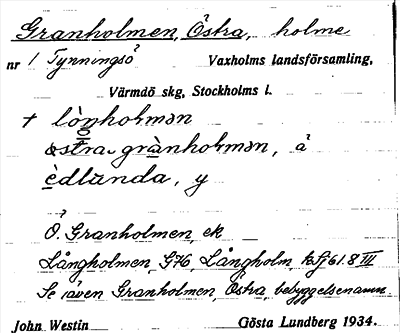 Granholmen, Östra, holme
nr 1 Tynningsö Vaxholms landsförsamling,
Värmdö skg, Stockholms l.
+ lònhoɫmən
östra grànhoɫmən, å
èdlùnda, y
Ö. Granholmen, ek
Långholmen, G76, Långholm, kSj 61.8 III
Se även Granholmen, Östra, bebyggelsenamn.
John Westin Gösta Lundberg 1934.